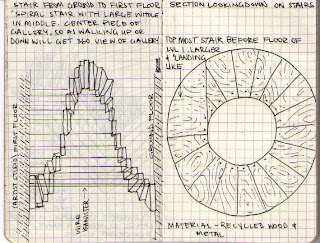 STAIR FROM GROUND TO FIRST FLOOR
SPIRAL STAIR WITH LARGE WHOLE
IN MIDDLE. CENTER FIELD OF
GALLERY, SO AS WALKING UP OR
DOWN WILL GET 360 VIEW OF GALLERY
ARTIST STUDIO / FIRST FLOOR
WIRE BANISTER →
GROUND FLOOR
SECTION LOOKING DOWN ON STAIRS
TOP MOST STAIR BEFORE FLOOR OF
LVL 1. LARGER
& LANDING
LIKE
MATERIAL - RECYCLED WOOD &
METAL